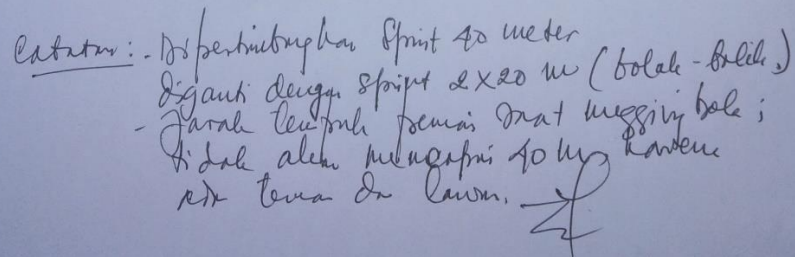 Catatan : - Dipertimbangkan Sprint 40 meter
diganti dengan sprint 2 x 20 m (bolak - balik.)
- Jarak tempuh pemain saat menggiring bola ;
tidak akan mencapai 40 m, karena
ada teman dan lawan.